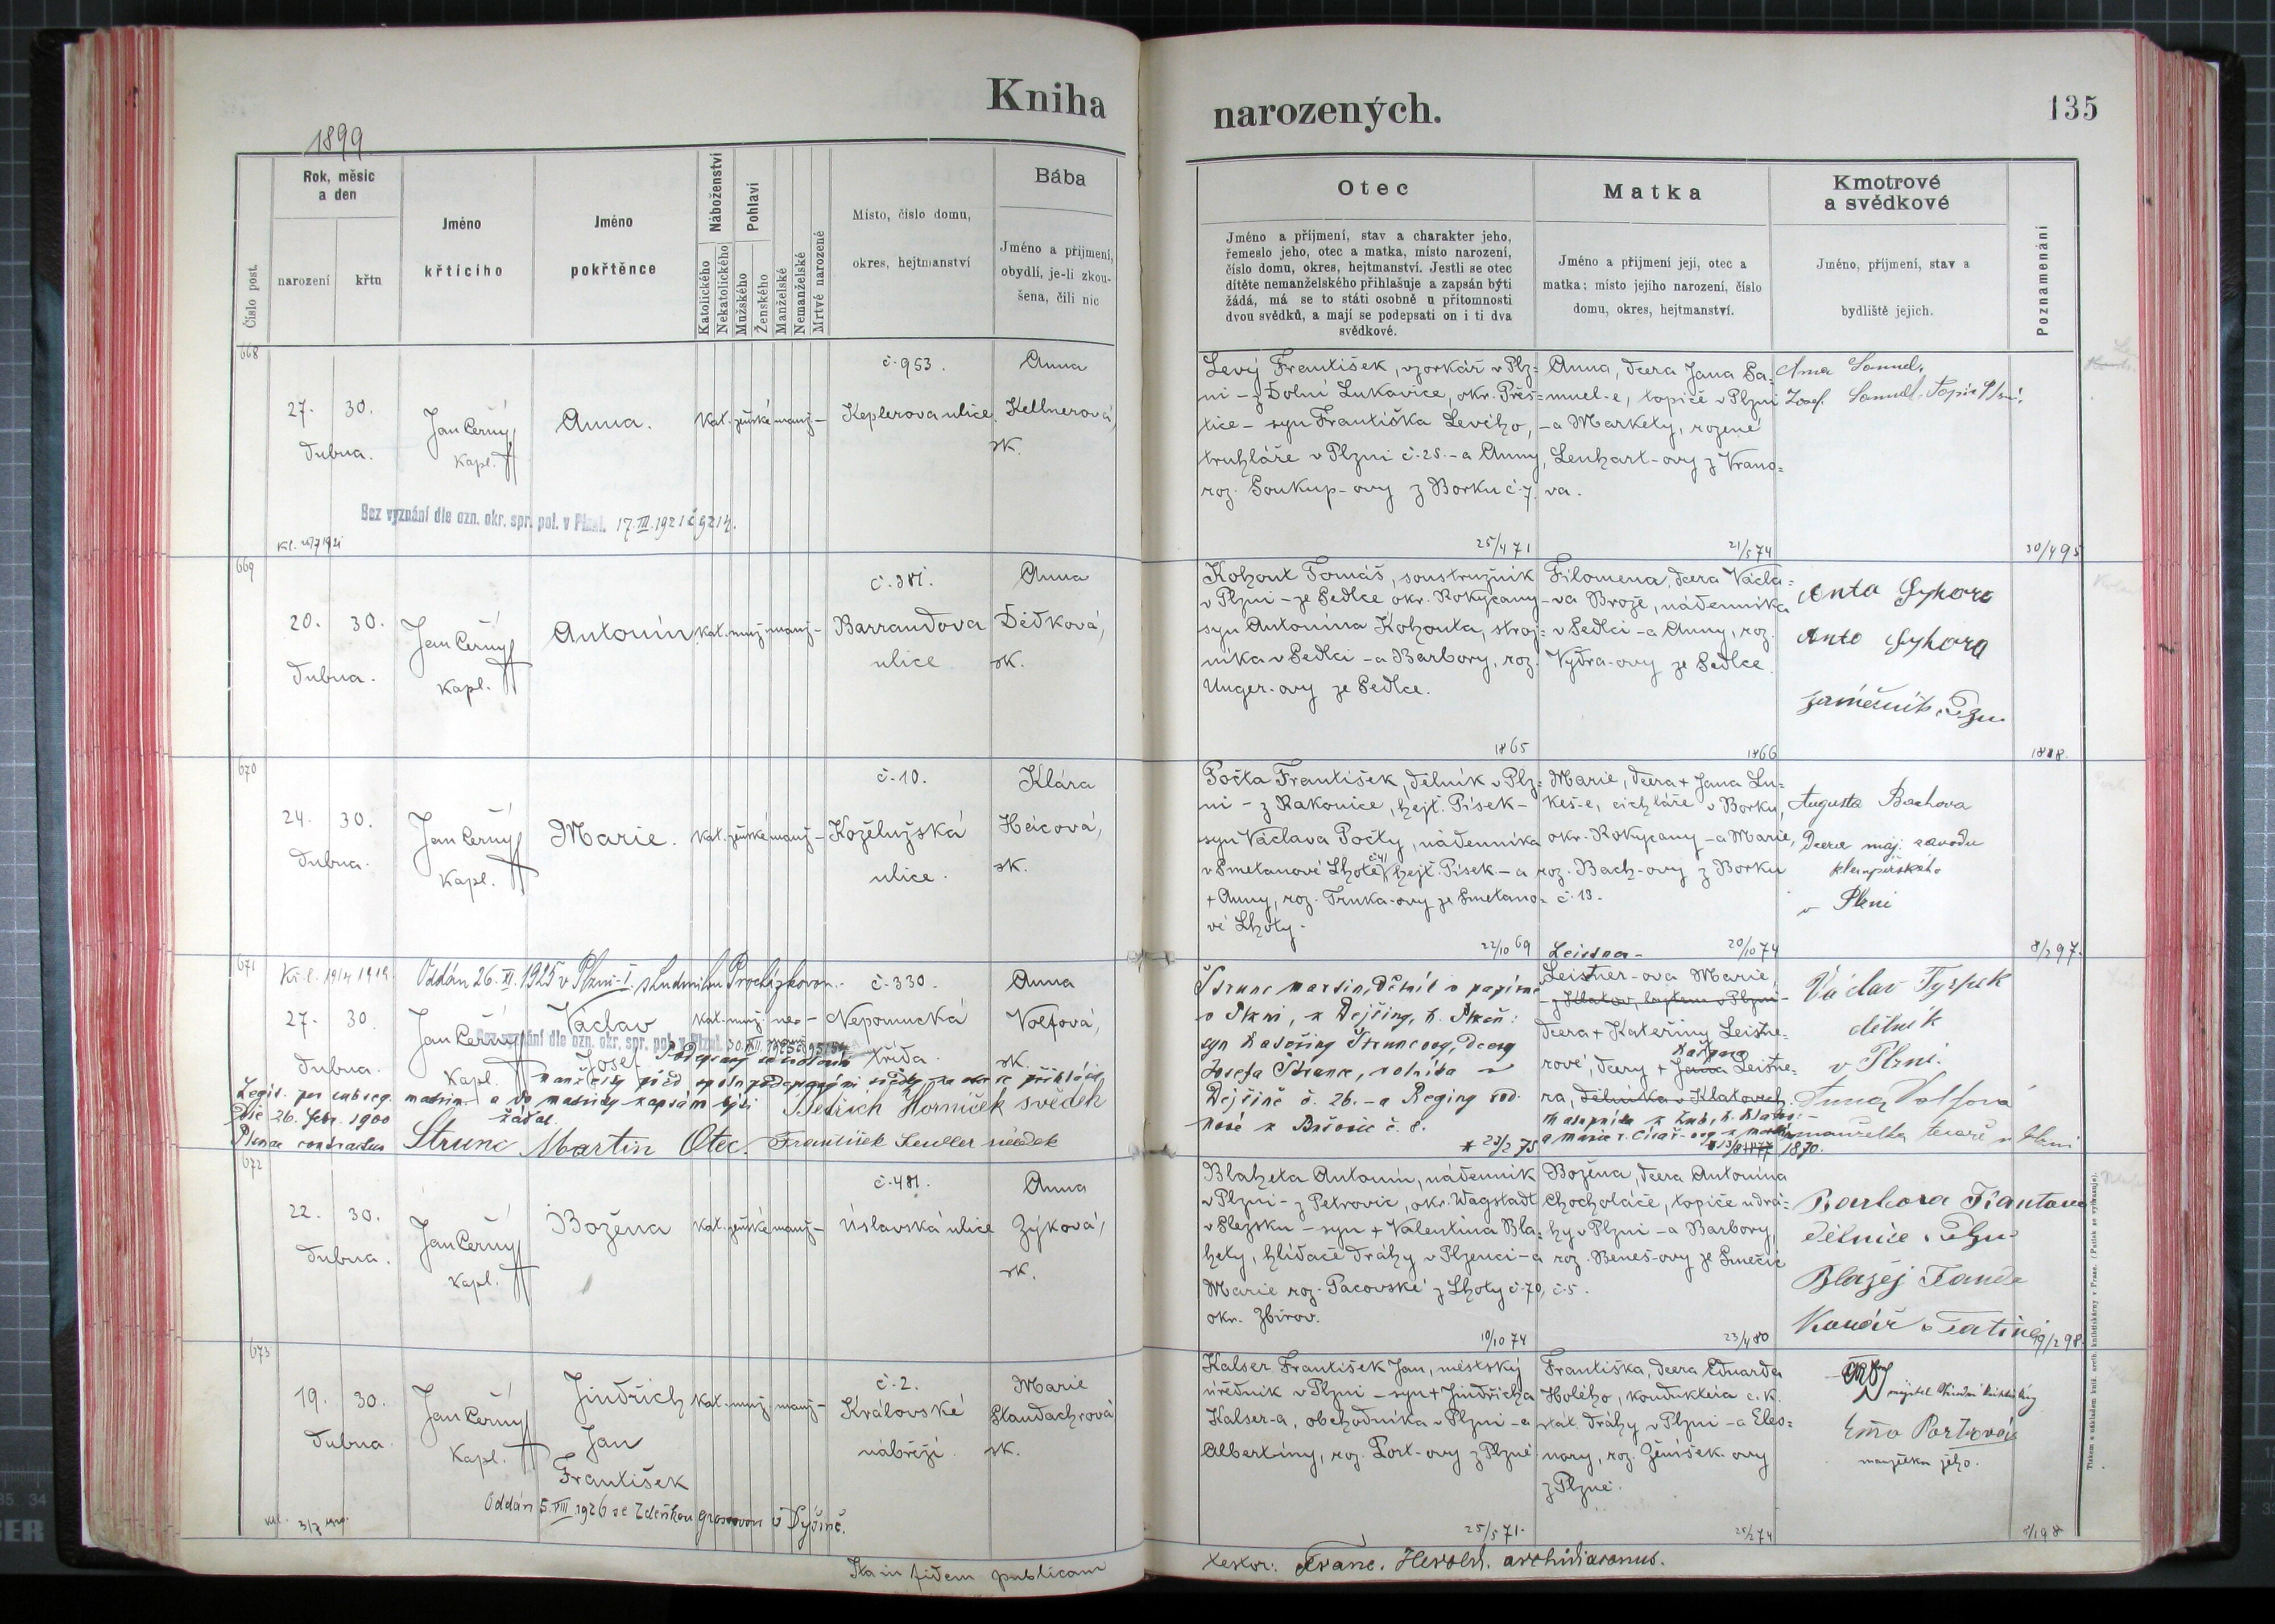 Kniha
narozených.
135
1899
Číslo post.
Rok, měsíc
a den
narození
křtu
Jméno
křticího
Jméno
pokřtěnce
Náboženství
Katolického
Nekatolického
Pohlaví
Mužského
Ženského
Manželské
Nemanželské
Mrtvě narozené
Místo, číslo domu,
okres, hejtmanství
Bába
Jméno a příjmení,
obydlí, je-li zkou-
šena, čili nic
Otec
Jméno a příjmení, stav a charakter jeho,
řemeslo jeho, otec a matka, místo narození,
číslo domu, okres, hejtmanství. Jestli se otec
dítěte nemanželského přihlašuje a zapsán býti
žádá, má se to státi osobně u přítomnosti
dvou svědků, a mají se podepsati on i ti dva
svědkové.
Matka
Jméno a příjmení její, otec a
matka; místo jejího narození, číslo
domu, okres, hejtmanství.
Kmotrové
a svědkové
Jméno, příjmení, stav a
bydliště jejich.
Poznamenání
668
27. 30.
dubna.
Jan Černý
kapl.
Anna.
kat. ženské manž-
č. 953.
Keplerova ulice
Anna
Kellnerová,
zk.
Bez vyznání dle ozn. okr. spr. pol. v Plzni. 17.III.1921 č 9214.
Levý František, vzorkář v Plz-
ni - z Dolní Lukavice, okr. Přeš-
tice - syn Františka Levého,
truhláře v Plzni č. 25. - a Anny,
roz. Soukup-ovy z Borku č. 7.
25/4 71
Anna, dcera Jana Sa-
muel-e, topiče v Plzni
- a Markety, rozené
Lenhart-ovy z Vrano-
va.
21/5 74
Anna Samuel,
Josef Samuel, topič Plzni.
30/4 95
669
20. 30.
dubna.
Jan Černý
kapl.
Antonín
kat. muž. manž-
č. 381.
Barrandova
ulice
Anna
Dědková,
zk.
Kohout Tomáš, soustružník
v Plzni - ze Sedlce okr. Rokycany
syn Antonína Kohouta, stroj-
níka v Sedlci - a Barbory, roz.
Unger-ovy ze Sedlce.
1865
Filomena, dcera Václa-
va Brože, nádenníka
v Sedlci - a Anny, roz.
Vydra-ovy ze Sedlce.
1866
Anto Syhora
zámečník, Plzn
670
24. 30.
dubna.
Jan Černý
kapl.
Marie.
kat. ženské manž-
č. 10.
Koželužská
ulice.
Klára
Heicová,
zk.
Počta František, dělník v Plz-
ni - z Rakovice, hejt. Písek -
syn Václava Počty, nádenníka
v Smetanové Lhotě č 4, hejt. Písek - a
+ Anny, roz. Trnka-ovy ze Smetano-
vé Lhoty.
22/10 69
Marie, dcera + Jana Lu-
keš-e, cichláře v Borku,
okr. Rokycany - a Marie,
roz. Bach-ovy z Borku
č. 13.
20/10 74
Augusta Bachova
Dcera maj. závodu
klempířského
v Plzni
8/2 97.
671
Oddán 26. XI. 1925 v Plzni-I. s Ludmilou Procházkovou.
27. 30.
dubna.
Jan Černý
kapl.
Václav
Josef
kat. muž. ne -
Bez vyznání dle ozn. okr. spr. pol. v Plzni
č. 330.
Nepomucká
třída.
Anna
Volfová,
zk.
a do matriky zapsám býti
žádal.
Strunc Martin Otec.
Bedřich Horníček svědek
František svědek
Legit. per subseq. matrim.
die 26. febr. 1900
Strunc Martin, Dělník v papírně
v Plzni,
Josefa Strunc, rolníka v
Dejšině č. 26. - a Reginy rod.
* 23/2 75
Leistner-ova Marie,
- z Klatov, bytem v Plzni -
dcera + Kateřiny Leistne-
rové, dcery + Jana Leistne-
ra, dělníka v Klatovech.
1870.
Václav Tyrpek
dělník
v Plzni.
Anna Volfová
manželka v Plzni
672
22. 30.
dubna.
Jan Černý
kapl.
Božena
kat. ženské manž-
č. 481.
Úslavská ulice
Anna
Zýková,
zk.
Blaheta Antonín, nádenník
v Plzni - z Petrovic, okr. Wagstadt
v Slezsku - syn + Valentina Bla-
hety, hlídače dráhy v Plzenci - a
Marie roz. Pacovské z Lhoty č. 70,
okr. Zbirov.
10/10 74
Božena, dcera Antonína
Chocholáče, topiče u drá-
hy v Plzni - a Barbory,
roz. Beneš-ovy ze Smečic
č. 5.
23/4 80
Barbora
dělnice v Plzni
Blažej
Kovář v
673
19. 30.
dubna.
Jan Černý
kapl.
Jindřich
Jan
František
kat. muž. manž-
č. 2.
Královské
nábřeží.
Marie
Standachrová
zk.
Oddán 5. VIII. 1926 se Zdeňkou Grossovou v Dýšině.
Kalser František Jan, městský
úředník v Plzni - syn + Jindřicha
Kalser-a, obchodníka v Plzni - a
Albertiny, roz. Port-ovy z Plzně.
25/5 71.
Františka, dcera Eduarda
Holého, konduktéra c. k.
stát. dráhy v Plzni - a Eleo-
nory, roz. Ženíšek-ovy
z Plzně.
25/2 74
Ema Portová
manželka jeho.
Ita in fidem publicam
testor: Franc. Herold. archidiaconus.